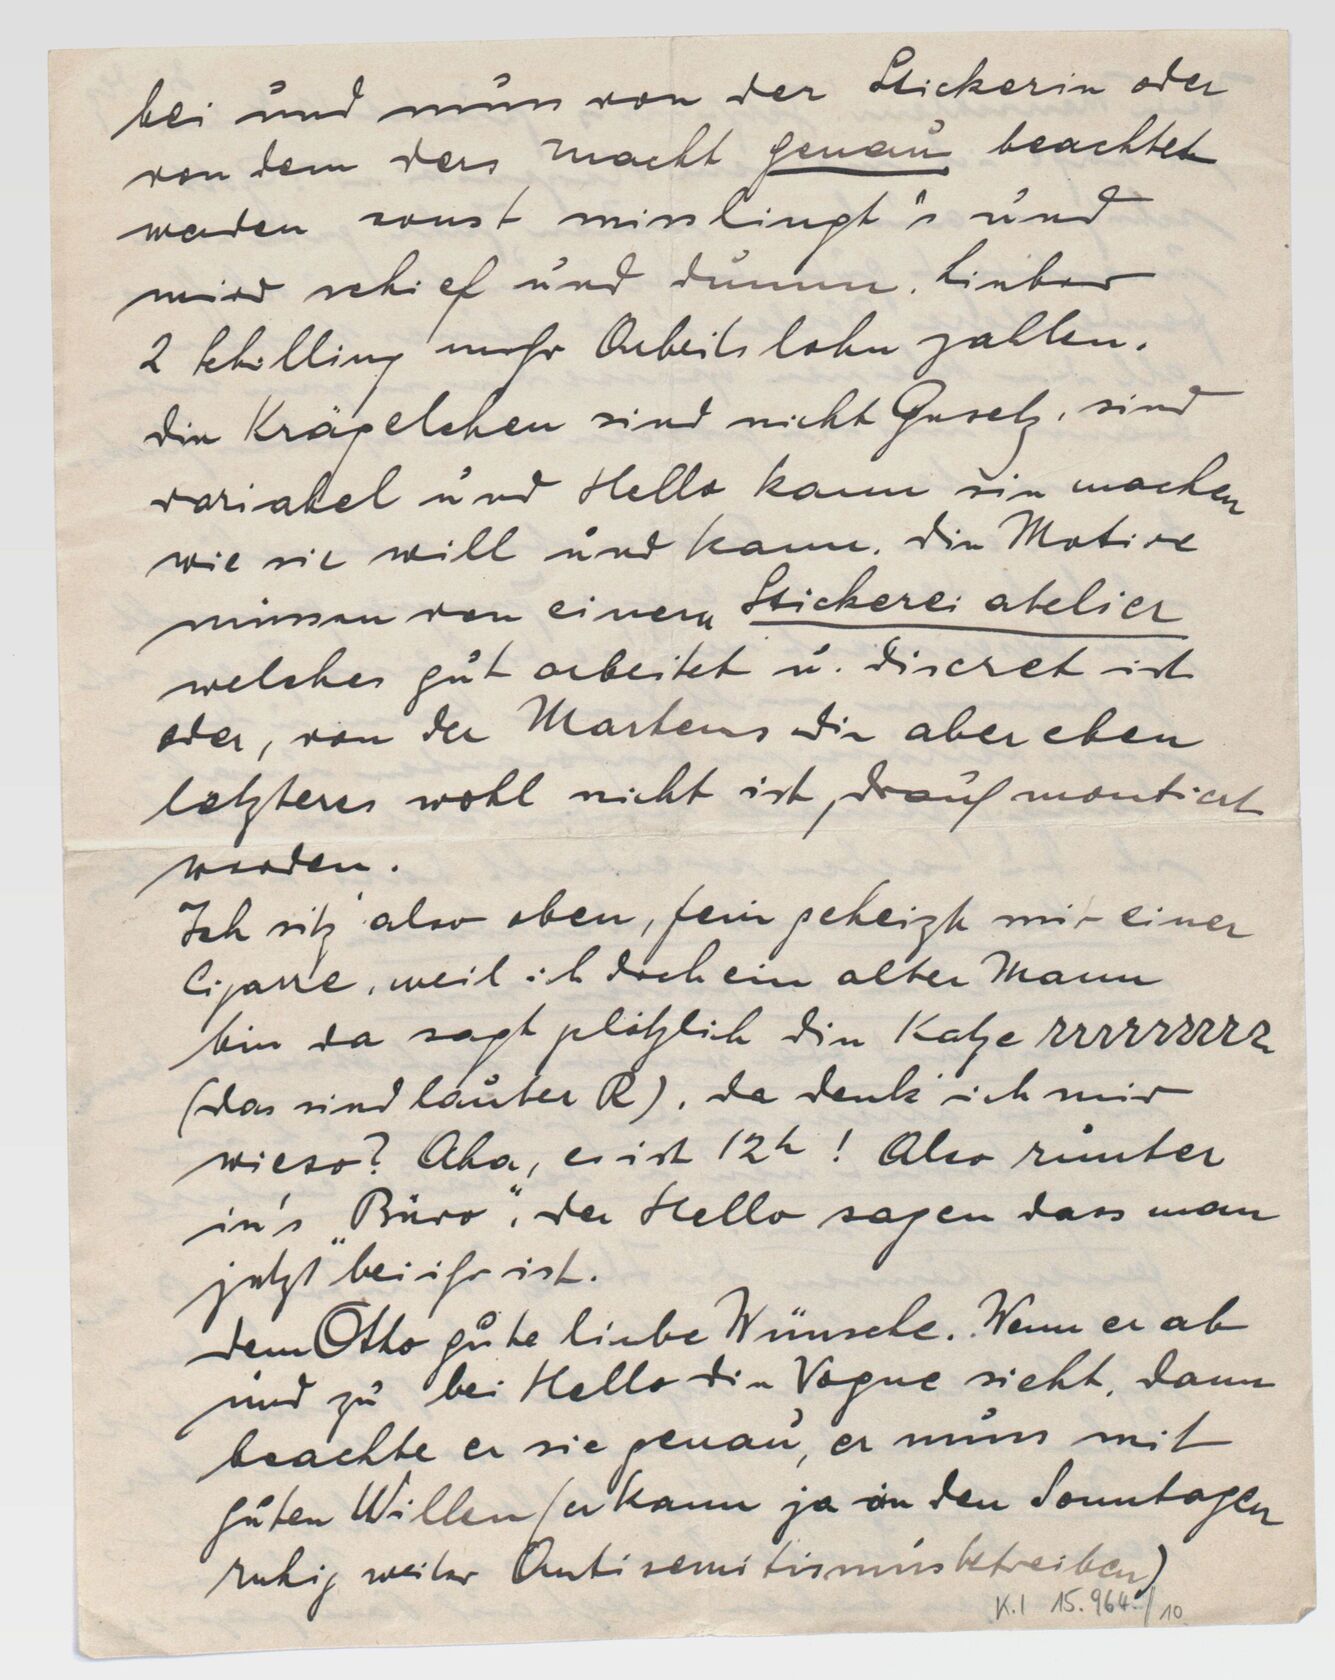 bei und muss von der Stickerin oder
von dem ders macht genau beachtet
werden sonst misslingt's und
wird schief und dumm. Lieber
2 Schilling mehr Arbeitslohn zahlen.
Die Krägelchen sind nicht Gesetz, sind
variabel und Hello kann sie machen
wie sie will und kann. Die Motive
müssen von einem Stickerei atelier
welches gut arbeitet u. discret ist
oder, von der Martens die aber eben
letzteres wohl nicht ist, drauf montiert
werden.
Ich sitz' also oben, fein geheizt mit einer
Cigarre, weil ich doch ein alter Mann
bin da sagt plötzlich die Katze rrrrrrrrr
(das sind lauter R), da denk ich mir
wieso? Aha, es ist 12h! Also runter
in's „Büro“, der Hello sagen dass man
jetzt bei ihr ist.
Dem Otto gute liebe Wünsche. Wenn er ab
und zu bei Hello die Vogue sieht, dann
beachte er sie genau, er muss mit
guten Willen (er kann ja an den Sonntagen
ruhig weiter Antisemitismus betreiben)
K.I 15.964/10